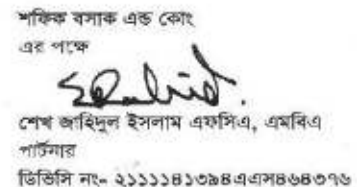 শফিক বসাক এন্ড কোং
এর পক্ষে
শেখ জাহিদুল ইসলাম এফসিএ, এমবিএ
পার্টনার
ডিভিসি নং- ২১১১১৪১৩৯৪এএস৪৬৪৩৭৬